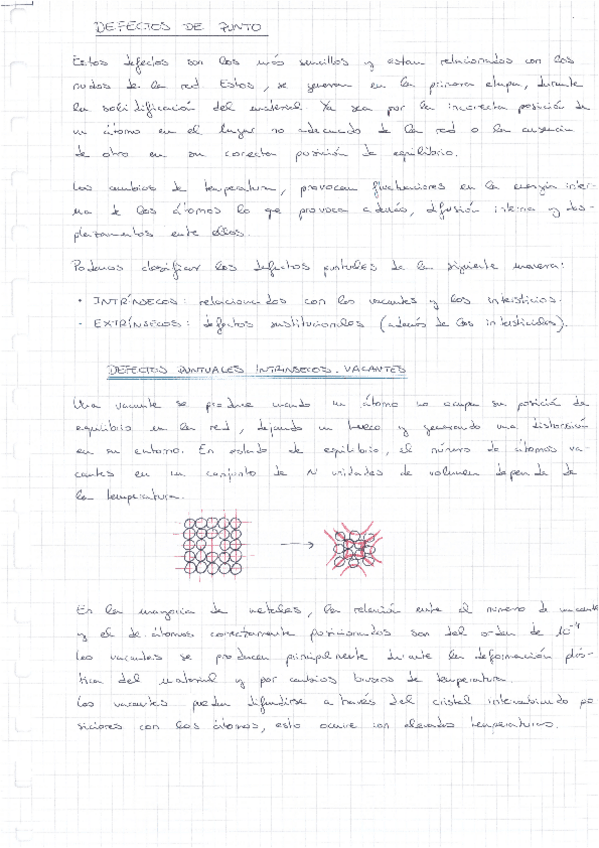 DEFECTOS DE PUNTO
Estos defectos son los más sencillos y estan relacionados con los
nudos de la red. Estos, se generan en la primera etapa, durante
la solidificación del material. Ya sea por la incorrecta posición de
un átomo en el lugar no adecuado de la red o la ausencia
de otro en su correcta posición de equilibrio.
Los cambios de temperatura, provocan fluctuaciones en la energía inter-
na de los átomos lo que provoca además, difusión interna y des-
plazamientos entre ellos.
Podemos clasificar los defectos puntuales de la siguiente manera:
· INTRÍNSECOS: relacionados con las vacantes y los intersticios.
· EXTRÍNSECOS: defectos sustitucionales (además de los intersticiales).
DEFECTOS PUNTUALES INTRINSECOS. VACANTES
Una vacante se produce cuando un átomo no ocupa su posición de
equilibrio en la red, dejando un hueco y generando una distorsión
en su entorno. En estado de equilibrio, el número de átomos va-
cantes en un conjunto de N unidades de volumen depende de
la temperatura.
En la mayoría de metales, la relación entre el número de vacantes
y el de átomos correctamente posicionados son del orden de 10⁻⁴
Las vacantes se producen principalmente durante la deformación plás-
tica del material y por cambios buscos de temperatura.
Las vacantes pueden difundirse a través del cristal intercambiando po
siciones con los átomos, esto ocurre con elevadas temperaturas.